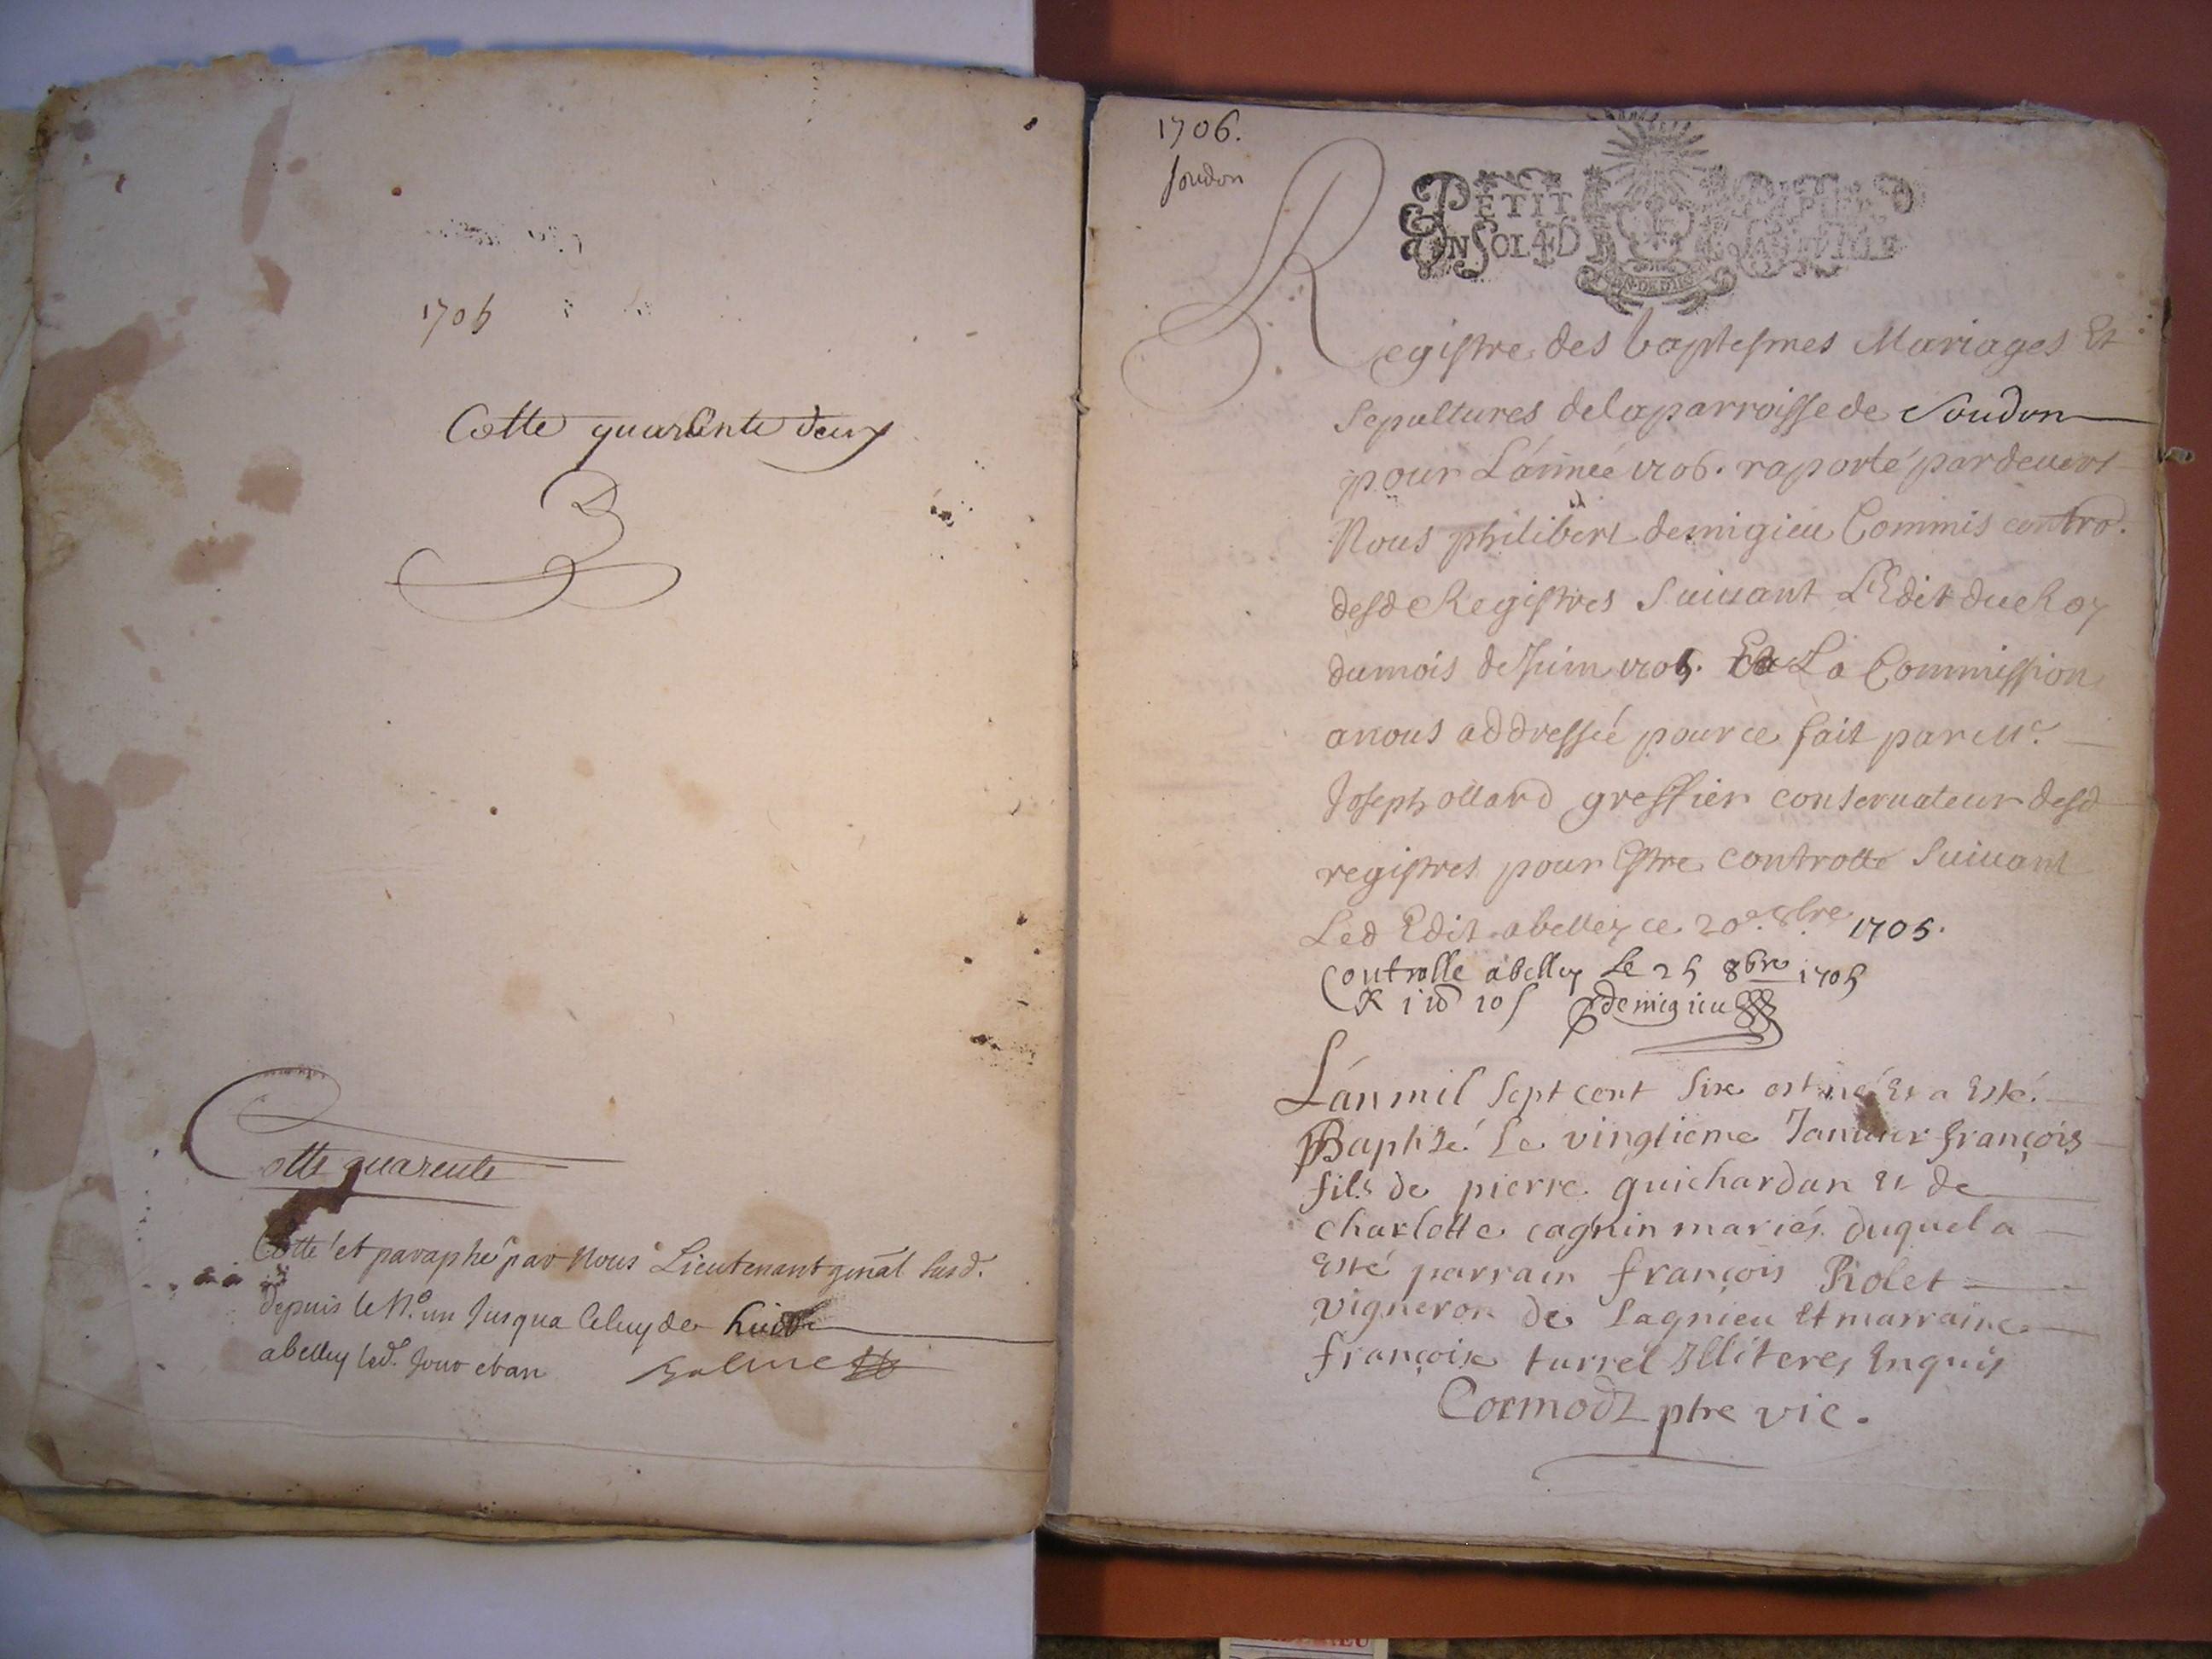 1705
Cotte quarente deux
Cotte quarente
Cotté et paraphé par Nous Lieutenant genãl susd.
depuis le N.o un Jusqua Celuy de huict
abelley led. Jour et an
1706.
Soudon
PETIT PAPIER
UN SOL 4 D LA FEUILLE
GEN. DE DIJON
Registre des baptesmes Mariages Et
Sepultures de la parroisse de Soudon
pour L'année 1706. raporté pardevant
Nous philibert demigieu Commis contro.
desd Registres Suivant L'Edit du Roy
du mois de Juin 1705. Et La Commission
a nous addressée pour ce fait par Me.
Joseph ollard greffier conservateur desd
registres pour Estre controllé Suivant
Led Edit abelley ce 20e. 8bre 1705.
Controllé abelley Le 25 8bre 1705
R 10 s demigieu
L'an mil Sept cent Six est né Et a Esté
Baptizé Le vingtieme Janvier françois
fils de pierre guichardan Et de
charlotte cagnin mariés duquel a
Esté parrain françois Riolet
vigneron de Lagnieu Et marraine
françoise turrel Illiteres Enquis
Cormodz ptre vic.